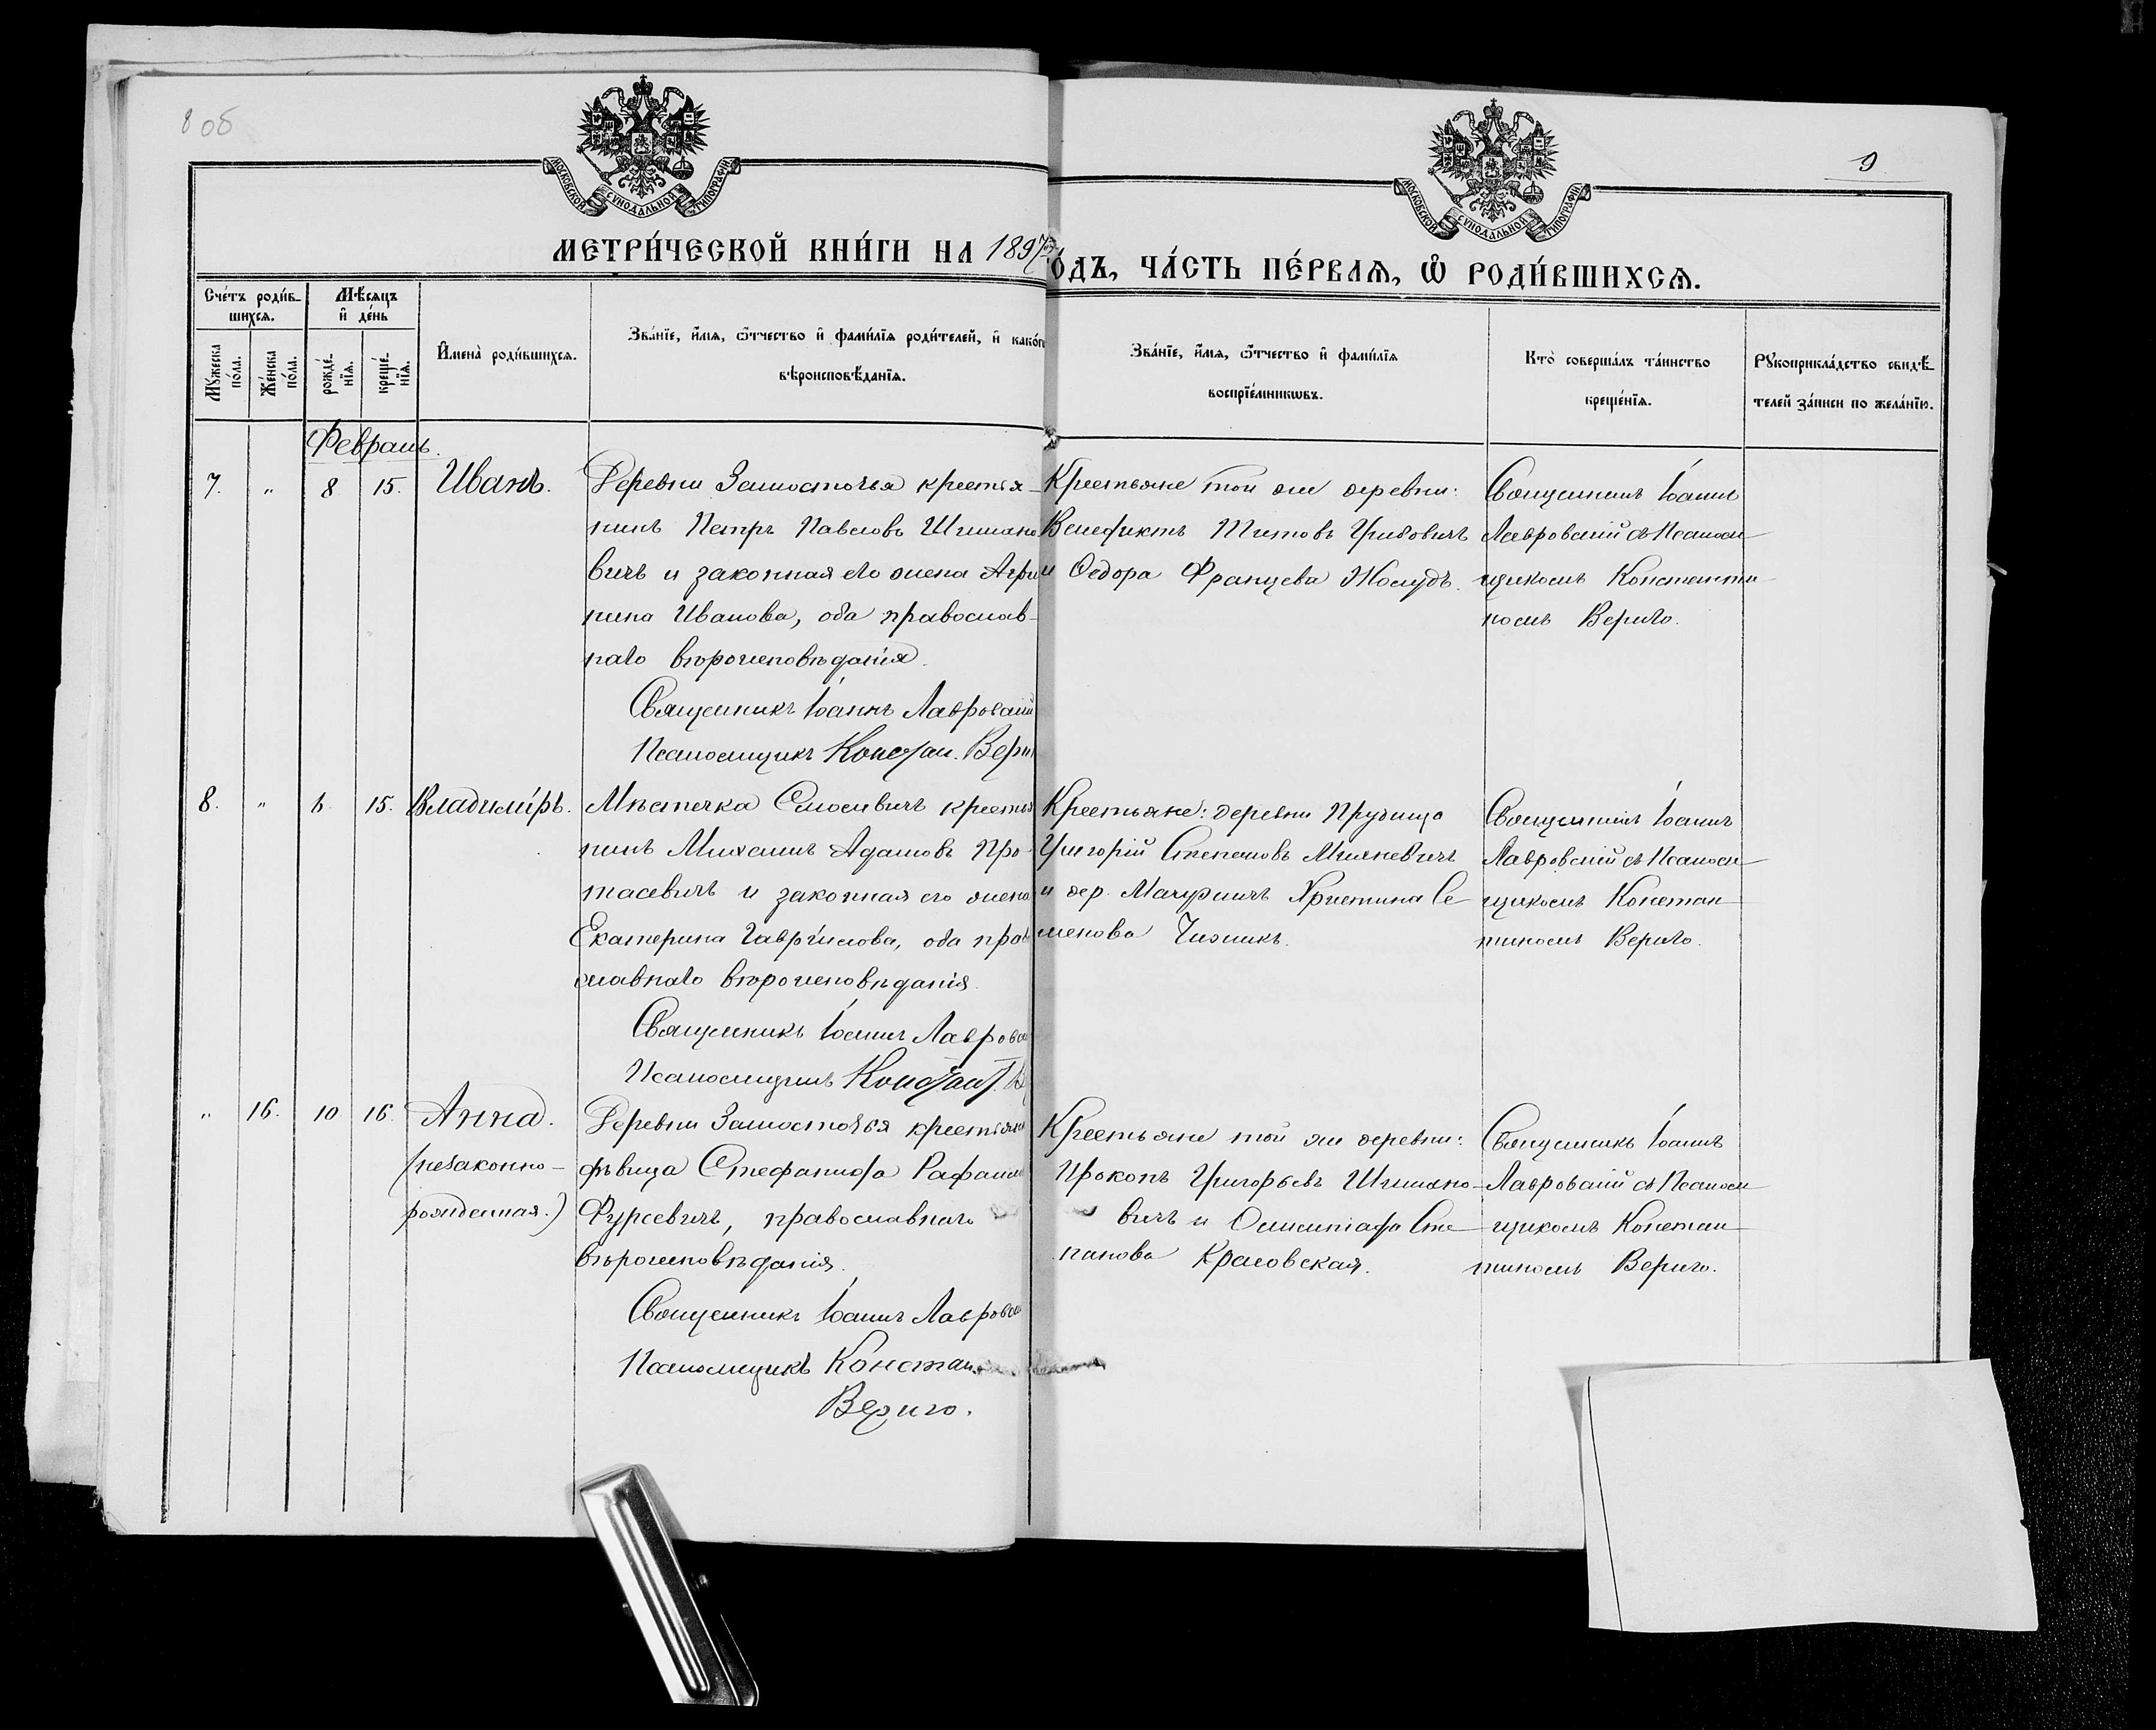 8 об
9
МОСКОВСКОЙ СѴНОДАЛЬНОЙ ТИПОГРАФІИ
МОСКОВСКОЙ СѴНОДАЛЬНОЙ ТИПОГРАФІИ
МЕТРИ́ЧЕСКОЙ КНИ́ГИ НА 1897
О́ДЪ, ЧА́СТЬ ПЕ́РВАЯ, Ѡ҆ РОДИ́ВШИХСЯ.
Сче́тъ роди́в-
шихся.
Мꙋ́жеска по́ла.
Же́нска по́ла.
Мѣ́сяцъ
и҆ де́нь
рожде́-
нїя.
креще́-
нїя.
И҆мена̀ роди́вшихся.
Зва́нїе, и҆́мя, ѻ҆́тчество и҆ фами́лїя роди́телей, и҆ како́г
вѣроисповѣ́данїя.
Зва́нїе, и҆́мя, ѻ҆́тчество и҆ фами́лїя
воспрїе́мникωвъ.
Кто̀ соверша́лъ та́инство
креще́нїя.
Рꙋкоприкла́дство свидѣ́-
телей за́писи по жела́нїю.
Февраль.
7. " 8 15. Иванъ.
Деревни Замосточья крестья-
нинъ Петръ Павловъ Шимано
вичъ и законная его жена Агри
пина Иванова, оба православ-
наго вѣроисповѣданія.
Священникъ Іоаннъ Лавровскій
Псаломщикъ Констан. Вери
Крестьяне той же деревни:
Венефиктъ Титовъ Грибовичъ
и Ѳедора Францева Жолудь.
Священникъ Іоаннъ
Лавровскій съ Псалом-
щикомъ Константи-
номъ Вериго.
8. " 6 15. Владиміръ.
Мѣстечка Смолевичъ крестья
нинъ Михаилъ Адамовъ Про-
тасевичъ и законная его жена
Екатерина Гавріилова, оба прав
славнаго вѣроисповѣданія.
Священникъ Іоаннъ Лавровск
Псаломщикъ Констант. В
Крестьяне: деревни Прудища
Григорій Степановъ Милкевичъ
и дер. Христина Се-
менова Чижикъ.
Священникъ Іоаннъ
Лавровскій съ Псалом-
щикомъ Констан-
тиномъ Вериго.
" 16. 10 16 Анна.
(незаконно-
рожденная.)
Деревни Замосточья крестьян
дѣвица Стефанида Рафаил
Фурсевичъ, православнаго
вѣроисповѣданія.
Священникъ Іоаннъ Лавровск
Псаломщикъ Констан
Вериго.
Крестьяне той же деревни:
Прокопъ Григорьевъ Шимано-
вичъ и Сте-
панова Красовская.
Священникъ Іоаннъ
Лавровскій съ Псалом-
щикомъ Констан-
тиномъ Вериго.